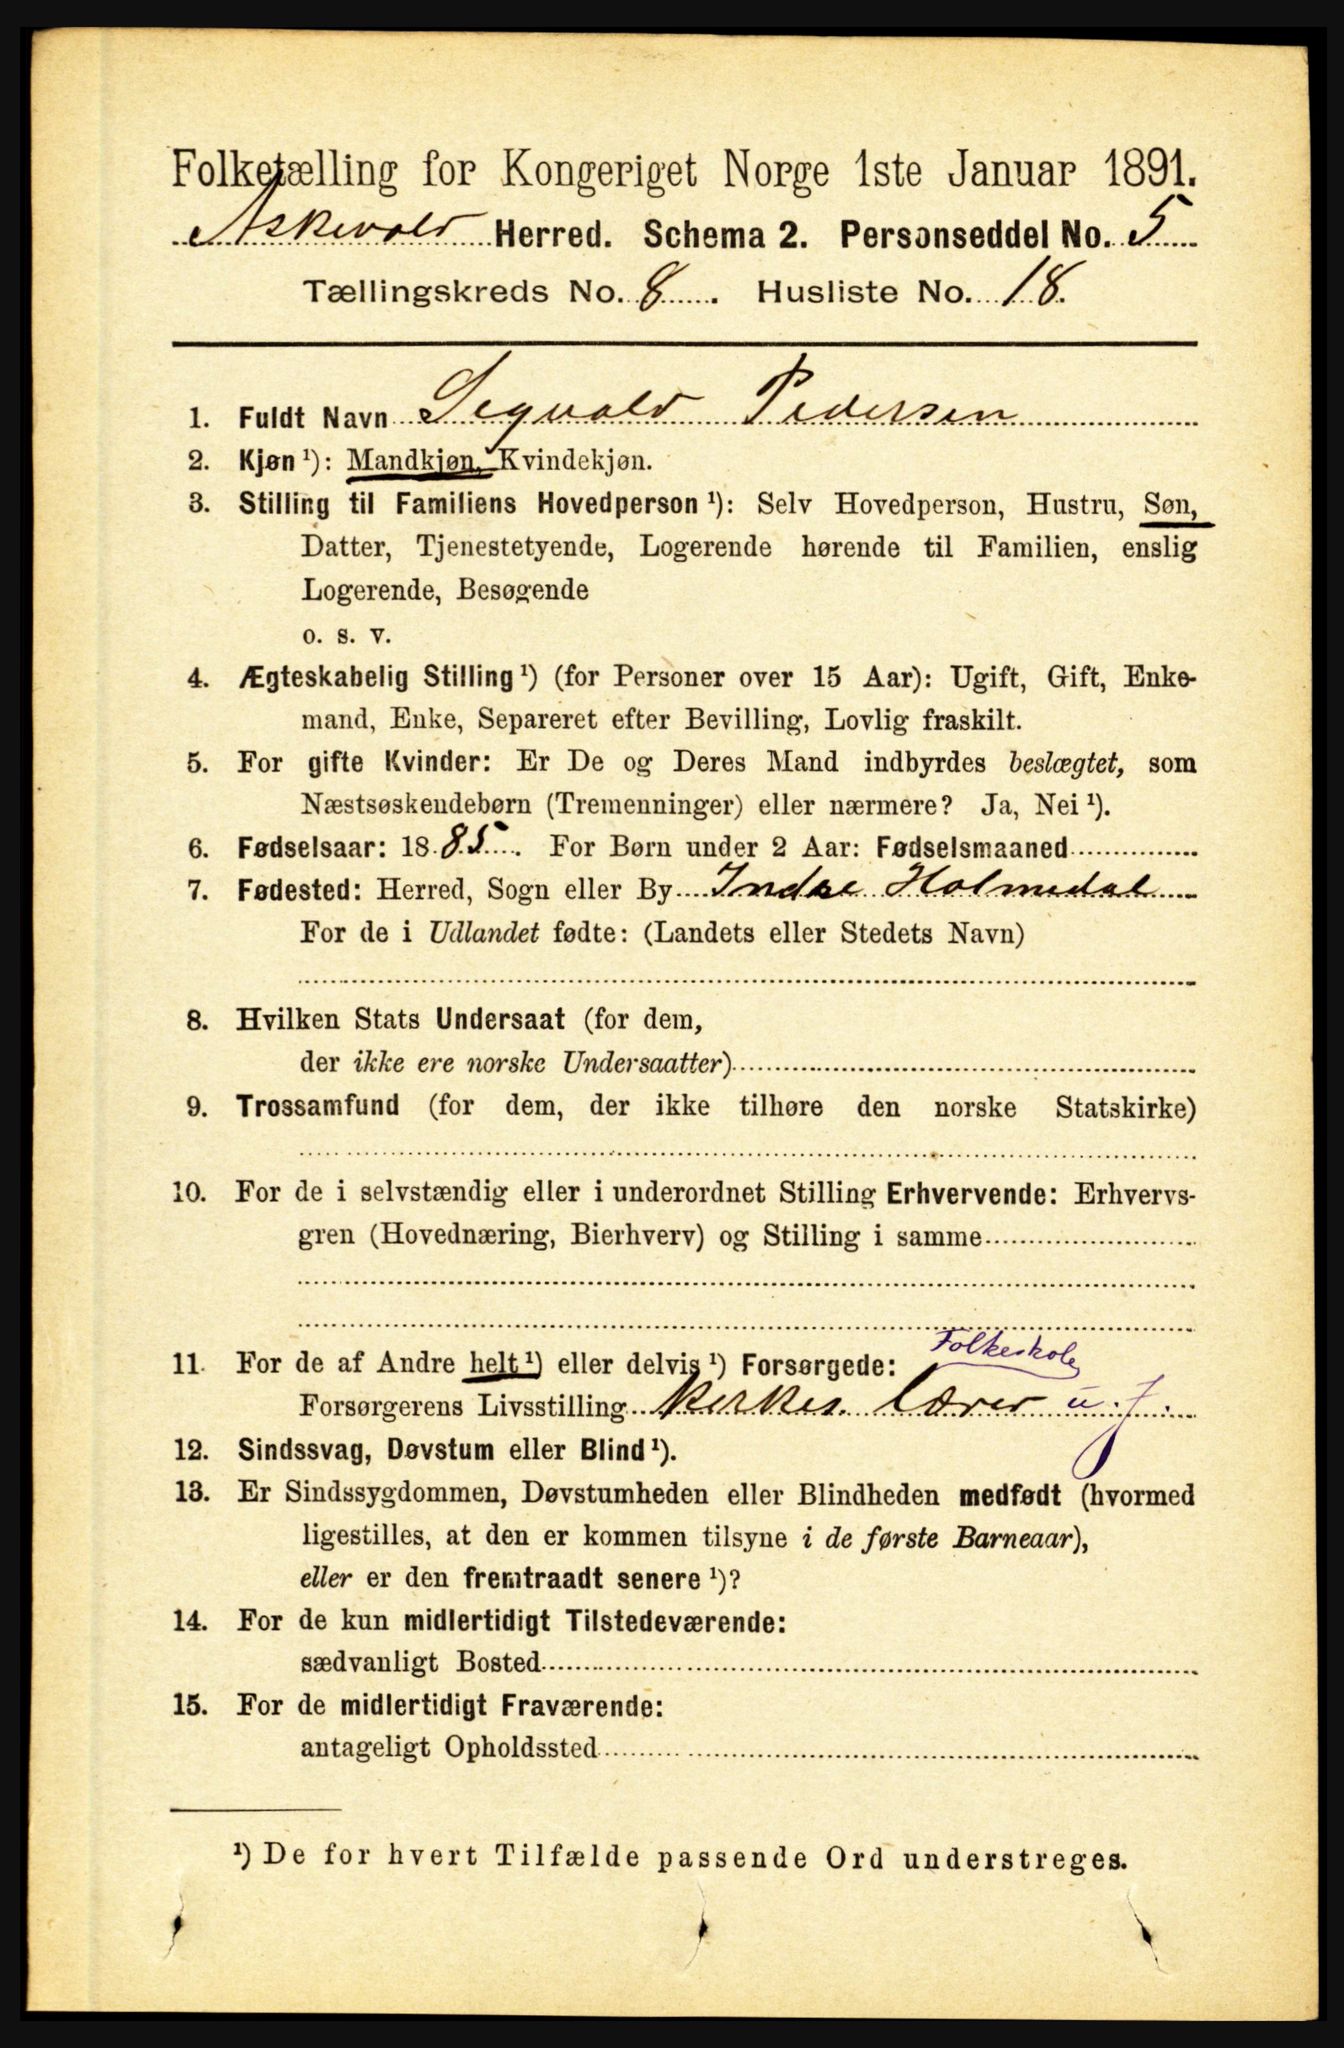 Folketælling for Kongeriget Norge 1ste Januar 1891.
Askevold Herred. Schema 2. Personseddel No. 5
Tællingskreds No. 8. Husliste No. 18.
1. Fuldt Navn Segvald Pedersen
2. Kjøn ¹): Mandkjøn, Kvindekjøn.
3. Stilling til Familiens Hovedperson ¹): Selv Hovedperson, Hustru, Søn,
Datter, Tjenestetyende, Logerende hørende til Familien, enslig
Logerende, Besøgende
o. s. v.
4. Ægteskabelig Stilling ¹) (for Personer over 15 Aar): Ugift, Gift, Enke-
mand, Enke, Separeret efter Bevilling, Lovlig fraskilt.
5. For gifte Kvinder: Er De og Deres Mand indbyrdes beslægtet, som
Næstsøskendebørn (Tremenninger) eller nærmere? Ja, Nei ¹).
6. Fødselsaar: 1885. For Børn under 2 Aar: Fødselsmaaned
7. Fødested: Herred, Sogn eller By Indre Holmedal
For de i Udlandet fødte: (Landets eller Stedets Navn)
8. Hvilken Stats Undersaat (for dem,
der ikke ere norske Undersaatter)
9. Trossamfund (for dem, der ikke tilhøre den norske Statskirke)
10. For de i selvstændig eller i underordnet Stilling Erhvervende: Erhvervs-
gren (Hovednæring, Bierhverv) og Stilling i samme
Folkeskole
11. For de af Andre helt ¹) eller delvis ¹) Forsørgede:
Forsørgerens Livsstilling lærer u. J.
12. Sindssvag, Døvstum eller Blind ¹).
13. Er Sindssygdommen, Døvstumheden eller Blindheden medfødt (hvormed
ligestilles, at den er kommen tilsyne i de første Barneaar),
eller er den fremtraadt senere ¹)?
14. For de kun midlertidigt Tilstedeværende:
sædvanligt Bosted
15. For de midlertidigt Fraværende:
antageligt Opholdssted
¹) De for hvert Tilfælde passende Ord understreges.